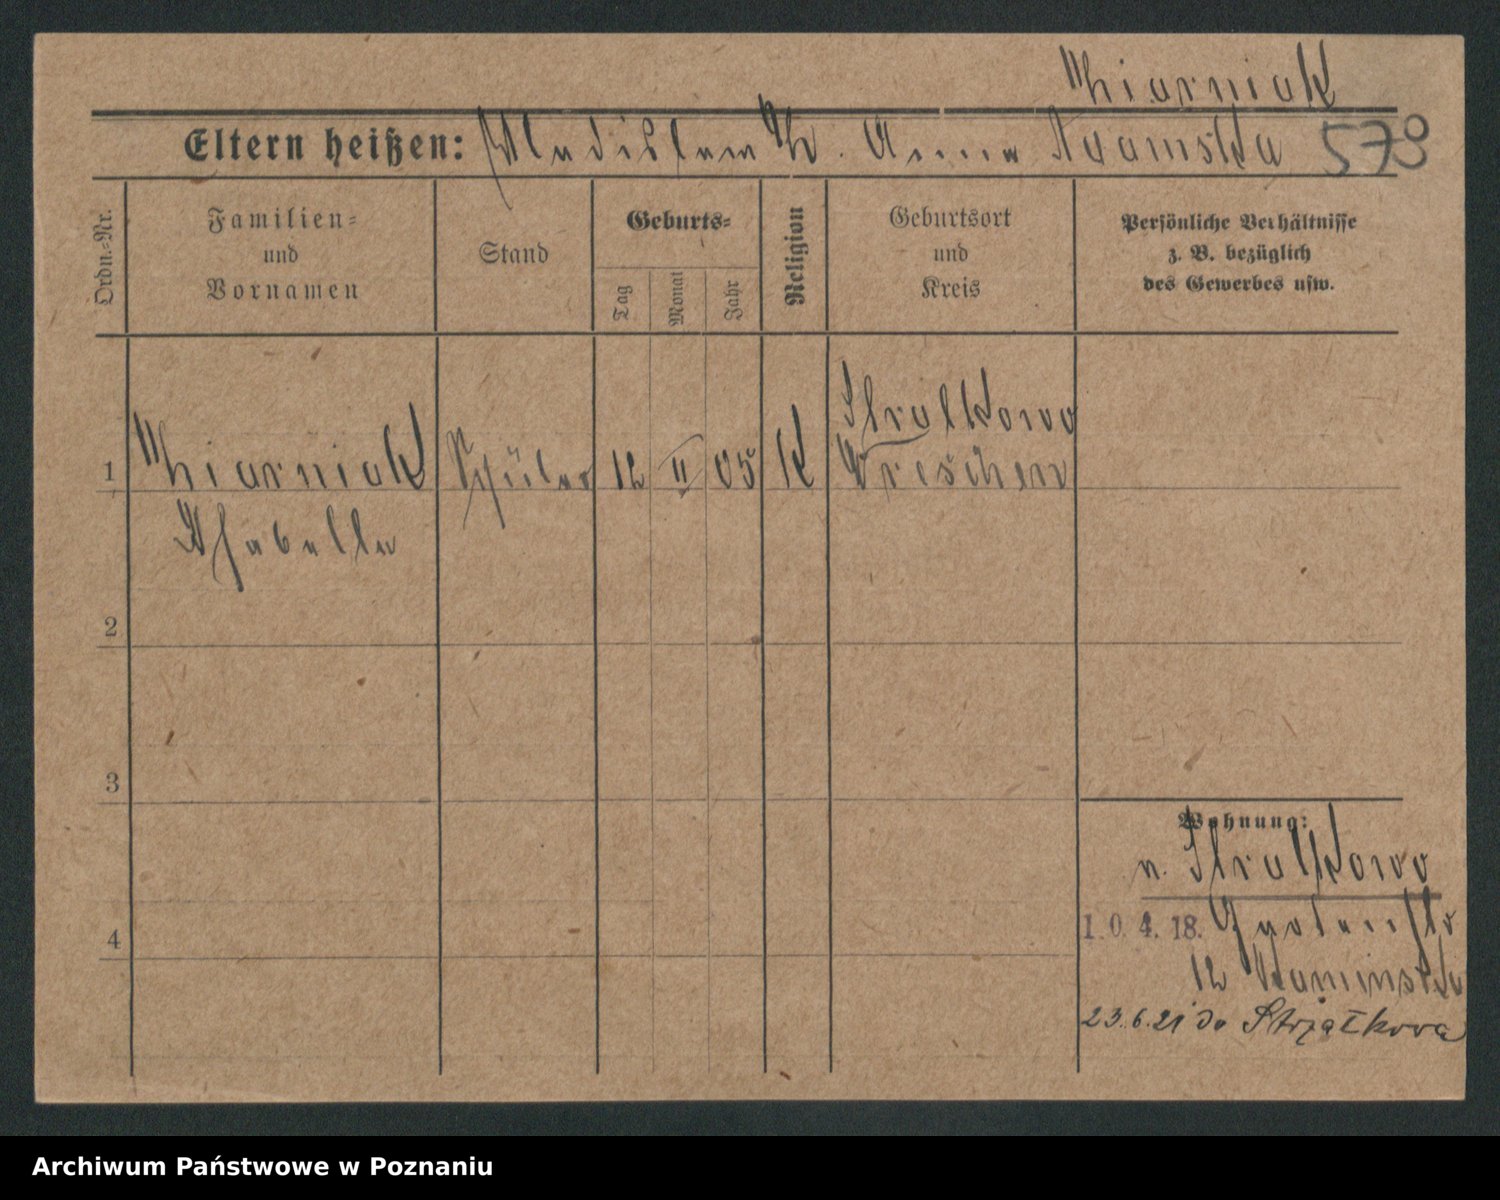 Miarniak
Eltern heißen: Wladislaw M. Anna Adamska 578
Ordn.-Nr.
Familien-
und
Vornamen
Stand
Geburts-
Tag
Monat
Jahr
Religion
Geburtsort
und
Kreis
Persönliche Verhältnisse
z. B. bezüglich
des Gewerbes usw.
Stralkowo
1 Miarniak Schüler 12 II 05 K Wreschen
Isabella
2
3
Wohnung:
n. Stralkowo
4 10. 4. 18.
12 Kaminska
23.6.21 do Strzałkowa
Archiwum Państwowe w Poznaniu